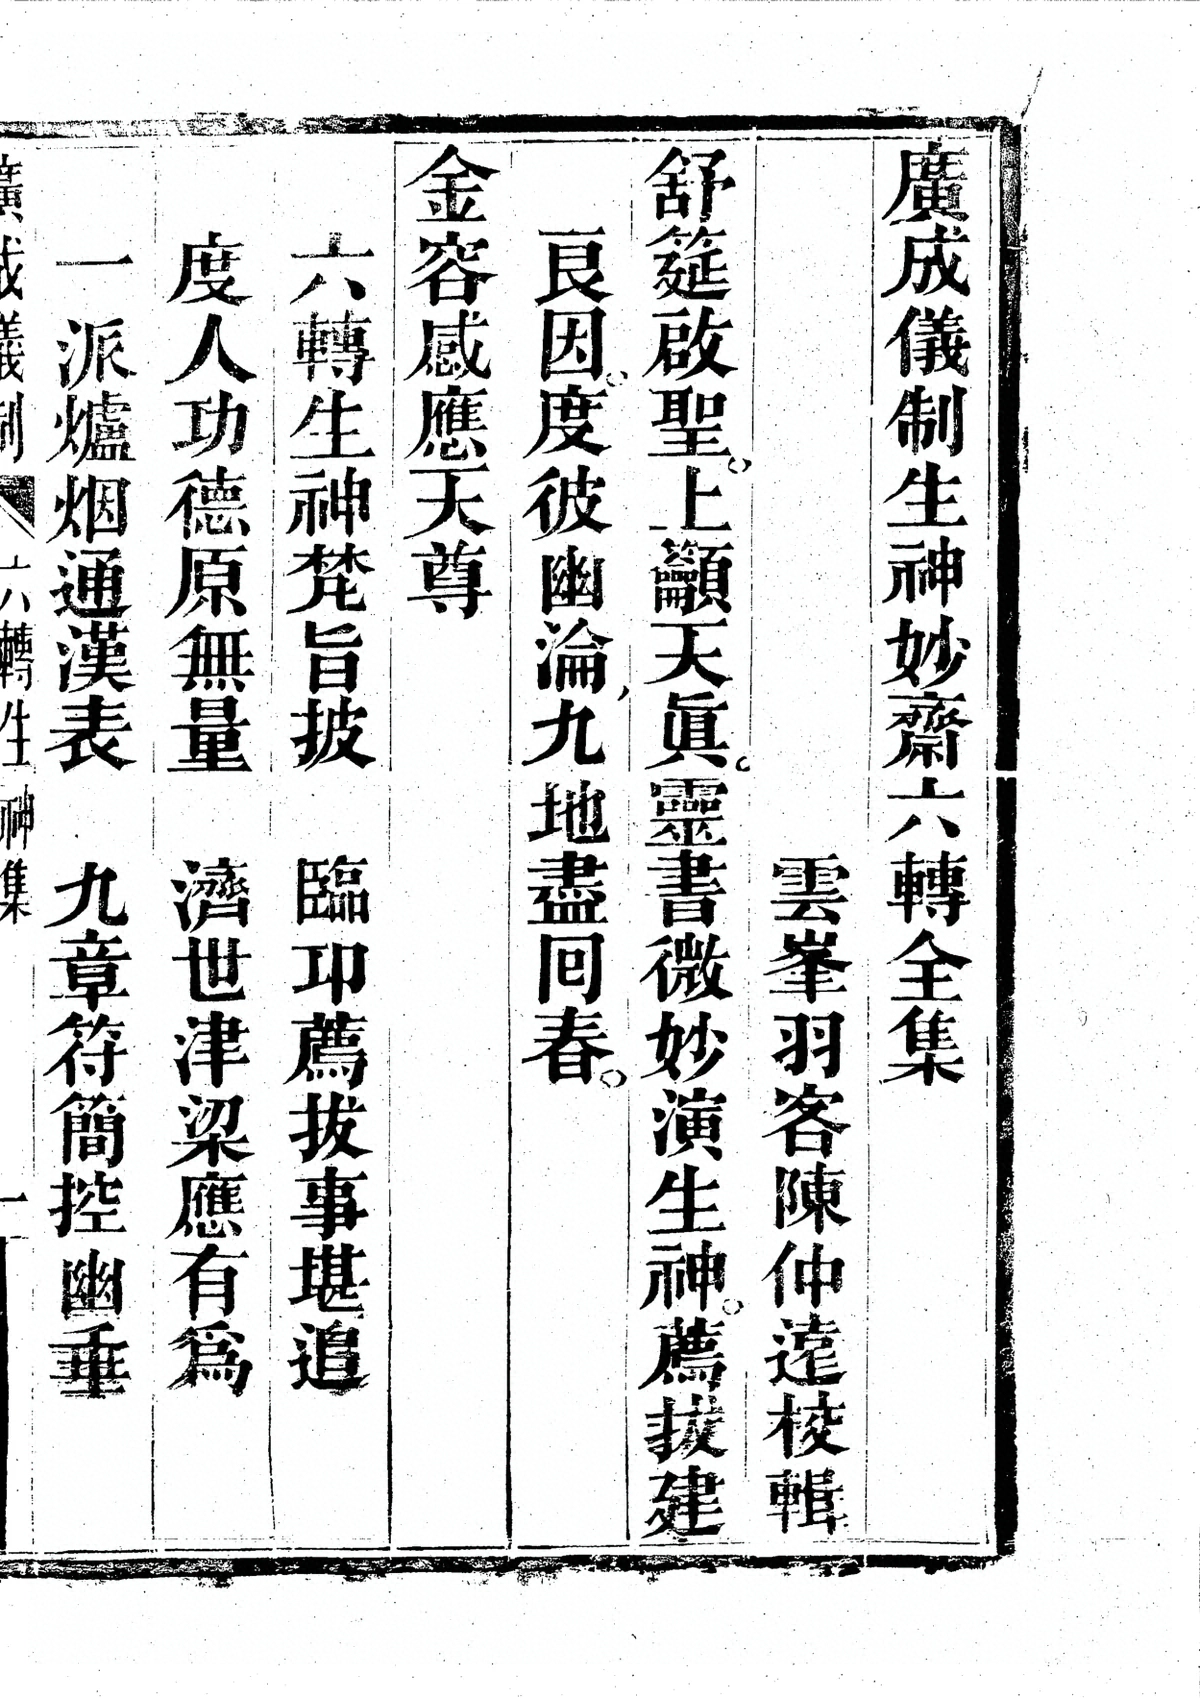 廣成儀制生神妙齋六轉全集
雲峯羽客陳仲遠校輯
舒筵啟聖。上籲天眞。靈書微妙演生神。薦拔建
良因。度彼幽淪、九地盡回春。
金容感應天尊
六轉生神梵旨披　臨卭薦拔事堪追
度人功德原無量　濟世津梁應有爲
一派爐烟通漢表　九章符簡控幽垂
廣成儀制　六轉生神集　一